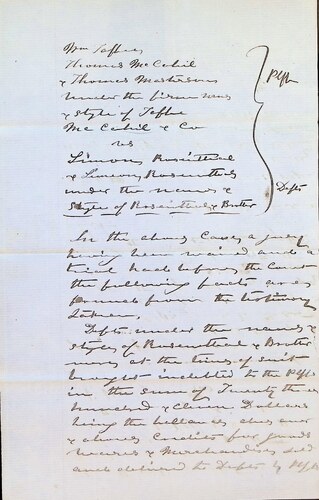 Wm Jaffrey
Thomas McCahil
& Thomas Mathewson
under the firm name
& style of Jaffre
McCahil & Co
Plffs
vs
Simon Rosenthal
& Simon Rosenthal
under the name &
Style of Rosenthal & Brother
Defts
In the above case a jury
having been waived and a
trial had before the Court
the following facts are
found from the testimony
taken.
Defts under the name &
style of Rosenthal & Brother
were at the time of suit
brought indebted to the Plffs
in the sum of Twenty three
hundred & eleven Dollars
being the ballance due over
& above Credits for goods
wares & Merchandise sold
and delivered to Defts by Plffs